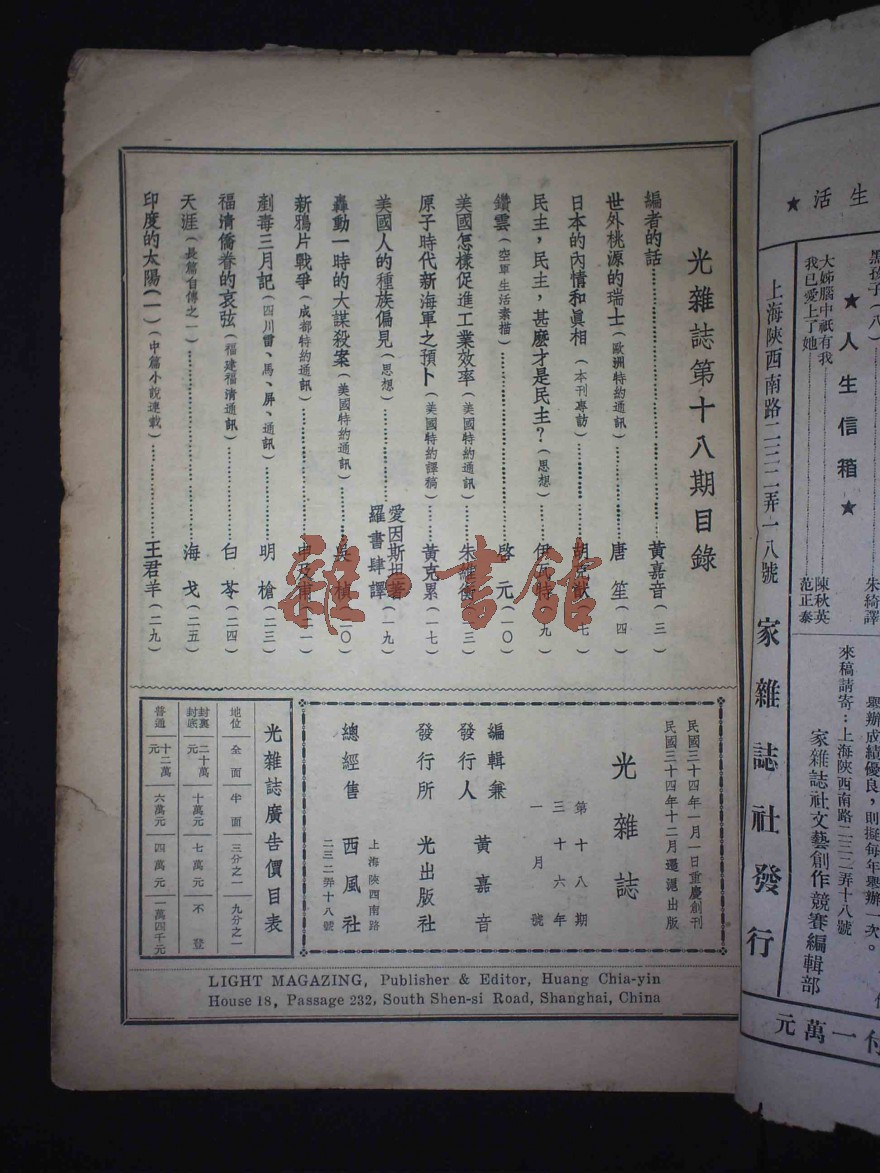 光雜誌第十八期目錄
編者的話……黃嘉音(三)
世外桃源的瑞士(歐洲特約通訊)……唐笙(四)
日本的內情和眞相(本刊專訪)……(七)
民主,民主,甚麼才是民主?(思想)……伊瓦特(九)
鑽雲(空軍生活素描)……啓元(一〇)
美國怎樣促進工業效率(美國特約通訊)……朱維衡(一三)
原子時代新海軍之預卜(美國特約譯稿)……黃克累(一七)
美國人的種族偏見(思想)……愛因斯坦著 羅書肆譯(一九)
轟動一時的大謀殺案(美國特約通訊)……吳楨(二〇)
新鴉片戰爭(成都特約通訊)……(二一)
剷毒三月記(四川雷、馬、屏、通訊)……明槍(二三)
福清僑眷的哀弦(福建福清通訊)……白苓(二四)
天涯(長篇自傳之一)……海戈(二五)
印度的太陽(一)(中篇小說連載)……王君羊(二九)
民國三十四年一月一日重慶創刊
民國三十四年十二月遷滬出版
光雜誌
第十八期
三十六年
一月號
編輯兼發行人 黃嘉音
發行所 光出版社
總經售 西風社
上海陝西南路
二三二弄十八號
光雜誌廣告價目表
地位 全面 半面 三分之一 九分之一
封裏封底 二十萬元 十萬元 七萬元 不登
普通 十二萬元 六萬元 四萬元 一萬四千元
LIGHT MAGAZING, Publisher & Editor, Huang Chia-yin
House 18, Passage 232, South Shen-si Road, Shanghai, China
雜·書館
生活★
朱綺譯
★人生信箱★
大姊腦中祇有我……陳秋英
我已愛上了她……范正泰
舉辦成績優良,則擬每年舉辦一次。
來稿請寄:上海陝西南路二三二弄十八號
家雜誌社文藝創作競賽編輯部
上海陝西南路二三二弄一八號 家雜誌社發行
付一萬元